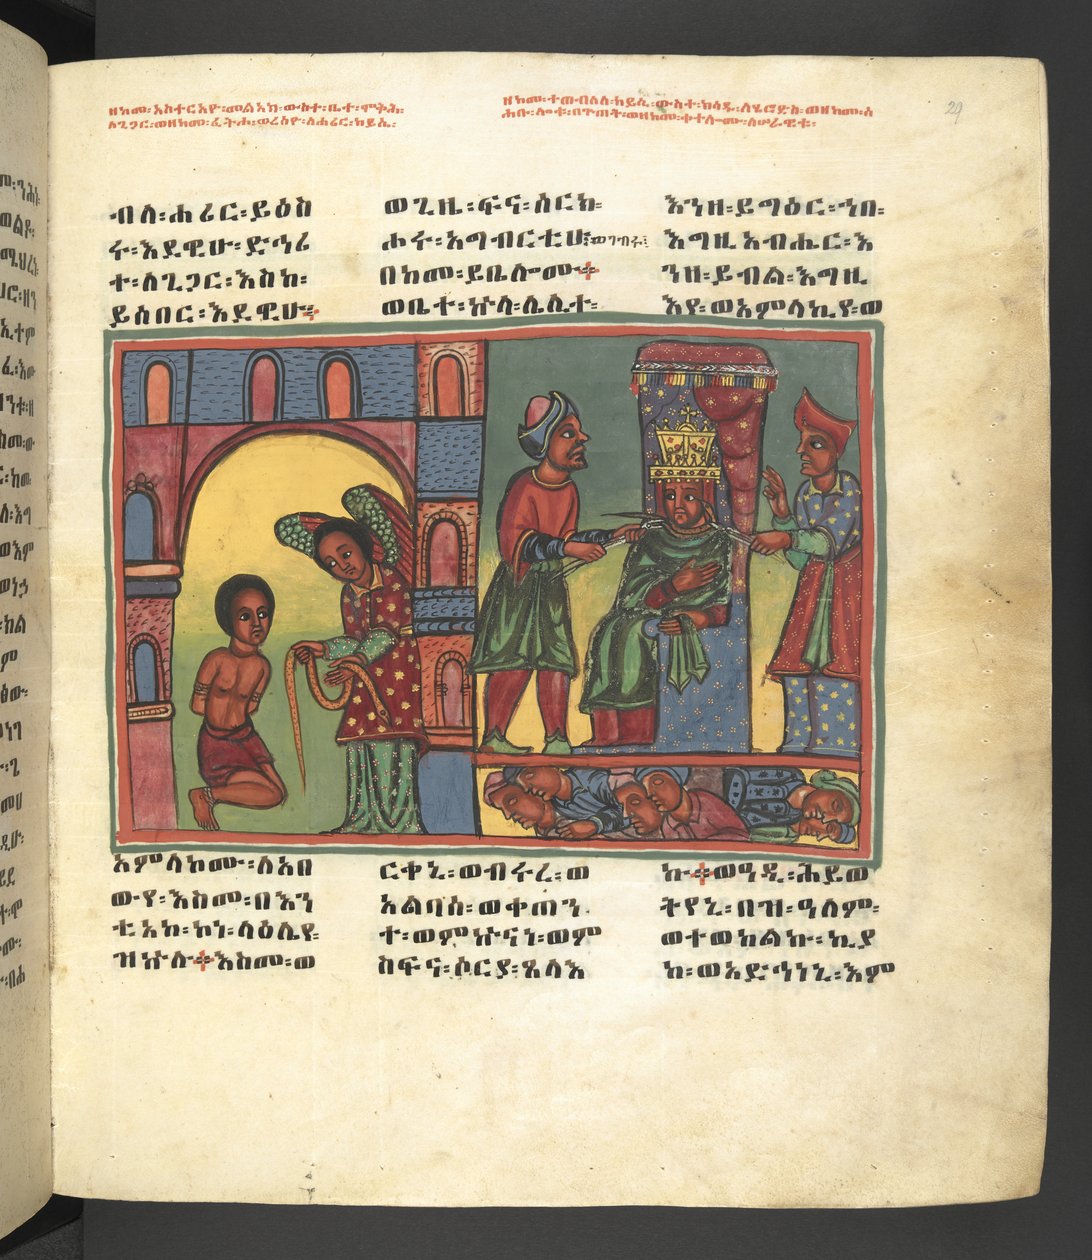 ዘከመ፡ አስተርአዮ፡ መልአክ፡ ውስተ፡ ቤተ፡ ሞቅሕ፡
ለጊጋር፡ ወዘከመ፡ ፈትሖ፡ ወረሰዮ፡ ለሐፊር፡ ከይሲ፡
ዘከመ፡ ተጠብለለ፡ ከይሲ፡ ውስተ፡ ክሳዱ፡ ለሄሮድስ፡ ወዘከመ፡ ሰ
ሕቡ፡ ሎቱ፡ በጕጠት፡ ወዘከመ፡ ተተሉ፡ ሠራዊቱ፡
29
ብለ፡ሐፊር፡ይዕስ
ሩ፡እደዊሁ፡ድኅሪ
ተ፡ለጊጋር፡እስከ፡
ይሰበር፡እደዊሁ።
ወጊዜ፡ፍና፡ሰርክ፡
ሐሩ፡አግብርቲሁ፡ወገብሩ፡
በከመ፡ይቤሎሙ።
ወቤተ፡ኵላ፡ሌሊተ፡
እንዘ፡ይግዕር፡ኀበ፡
እግዚአብሔር፡እ
ንዘ፡ይብል፡እግዚ
እየ፡ወአምላኪየ፡ወ
አምላከሙ፡ለአበ
ውየ፡እስመ፡በእን
ቲአከ፡ኮነ፡ላዕሌየ፡
ዝኵሉ።እስመ፡ወ
ርቀኒ፡ወብሩረ፡ወ
አልባሰ፡ወቀጠን
ተ፡ወምኵናነ፡ወም
ስፍና፡ሶርያ፡ጼላእ
ኩ።ወዓዲ፡ሕይወ
ትየኒ፡በዝ፡ዓለም፡
ወተወከልኩ፡ኪያ
ከ፡ወአድኅነኒ፡እም